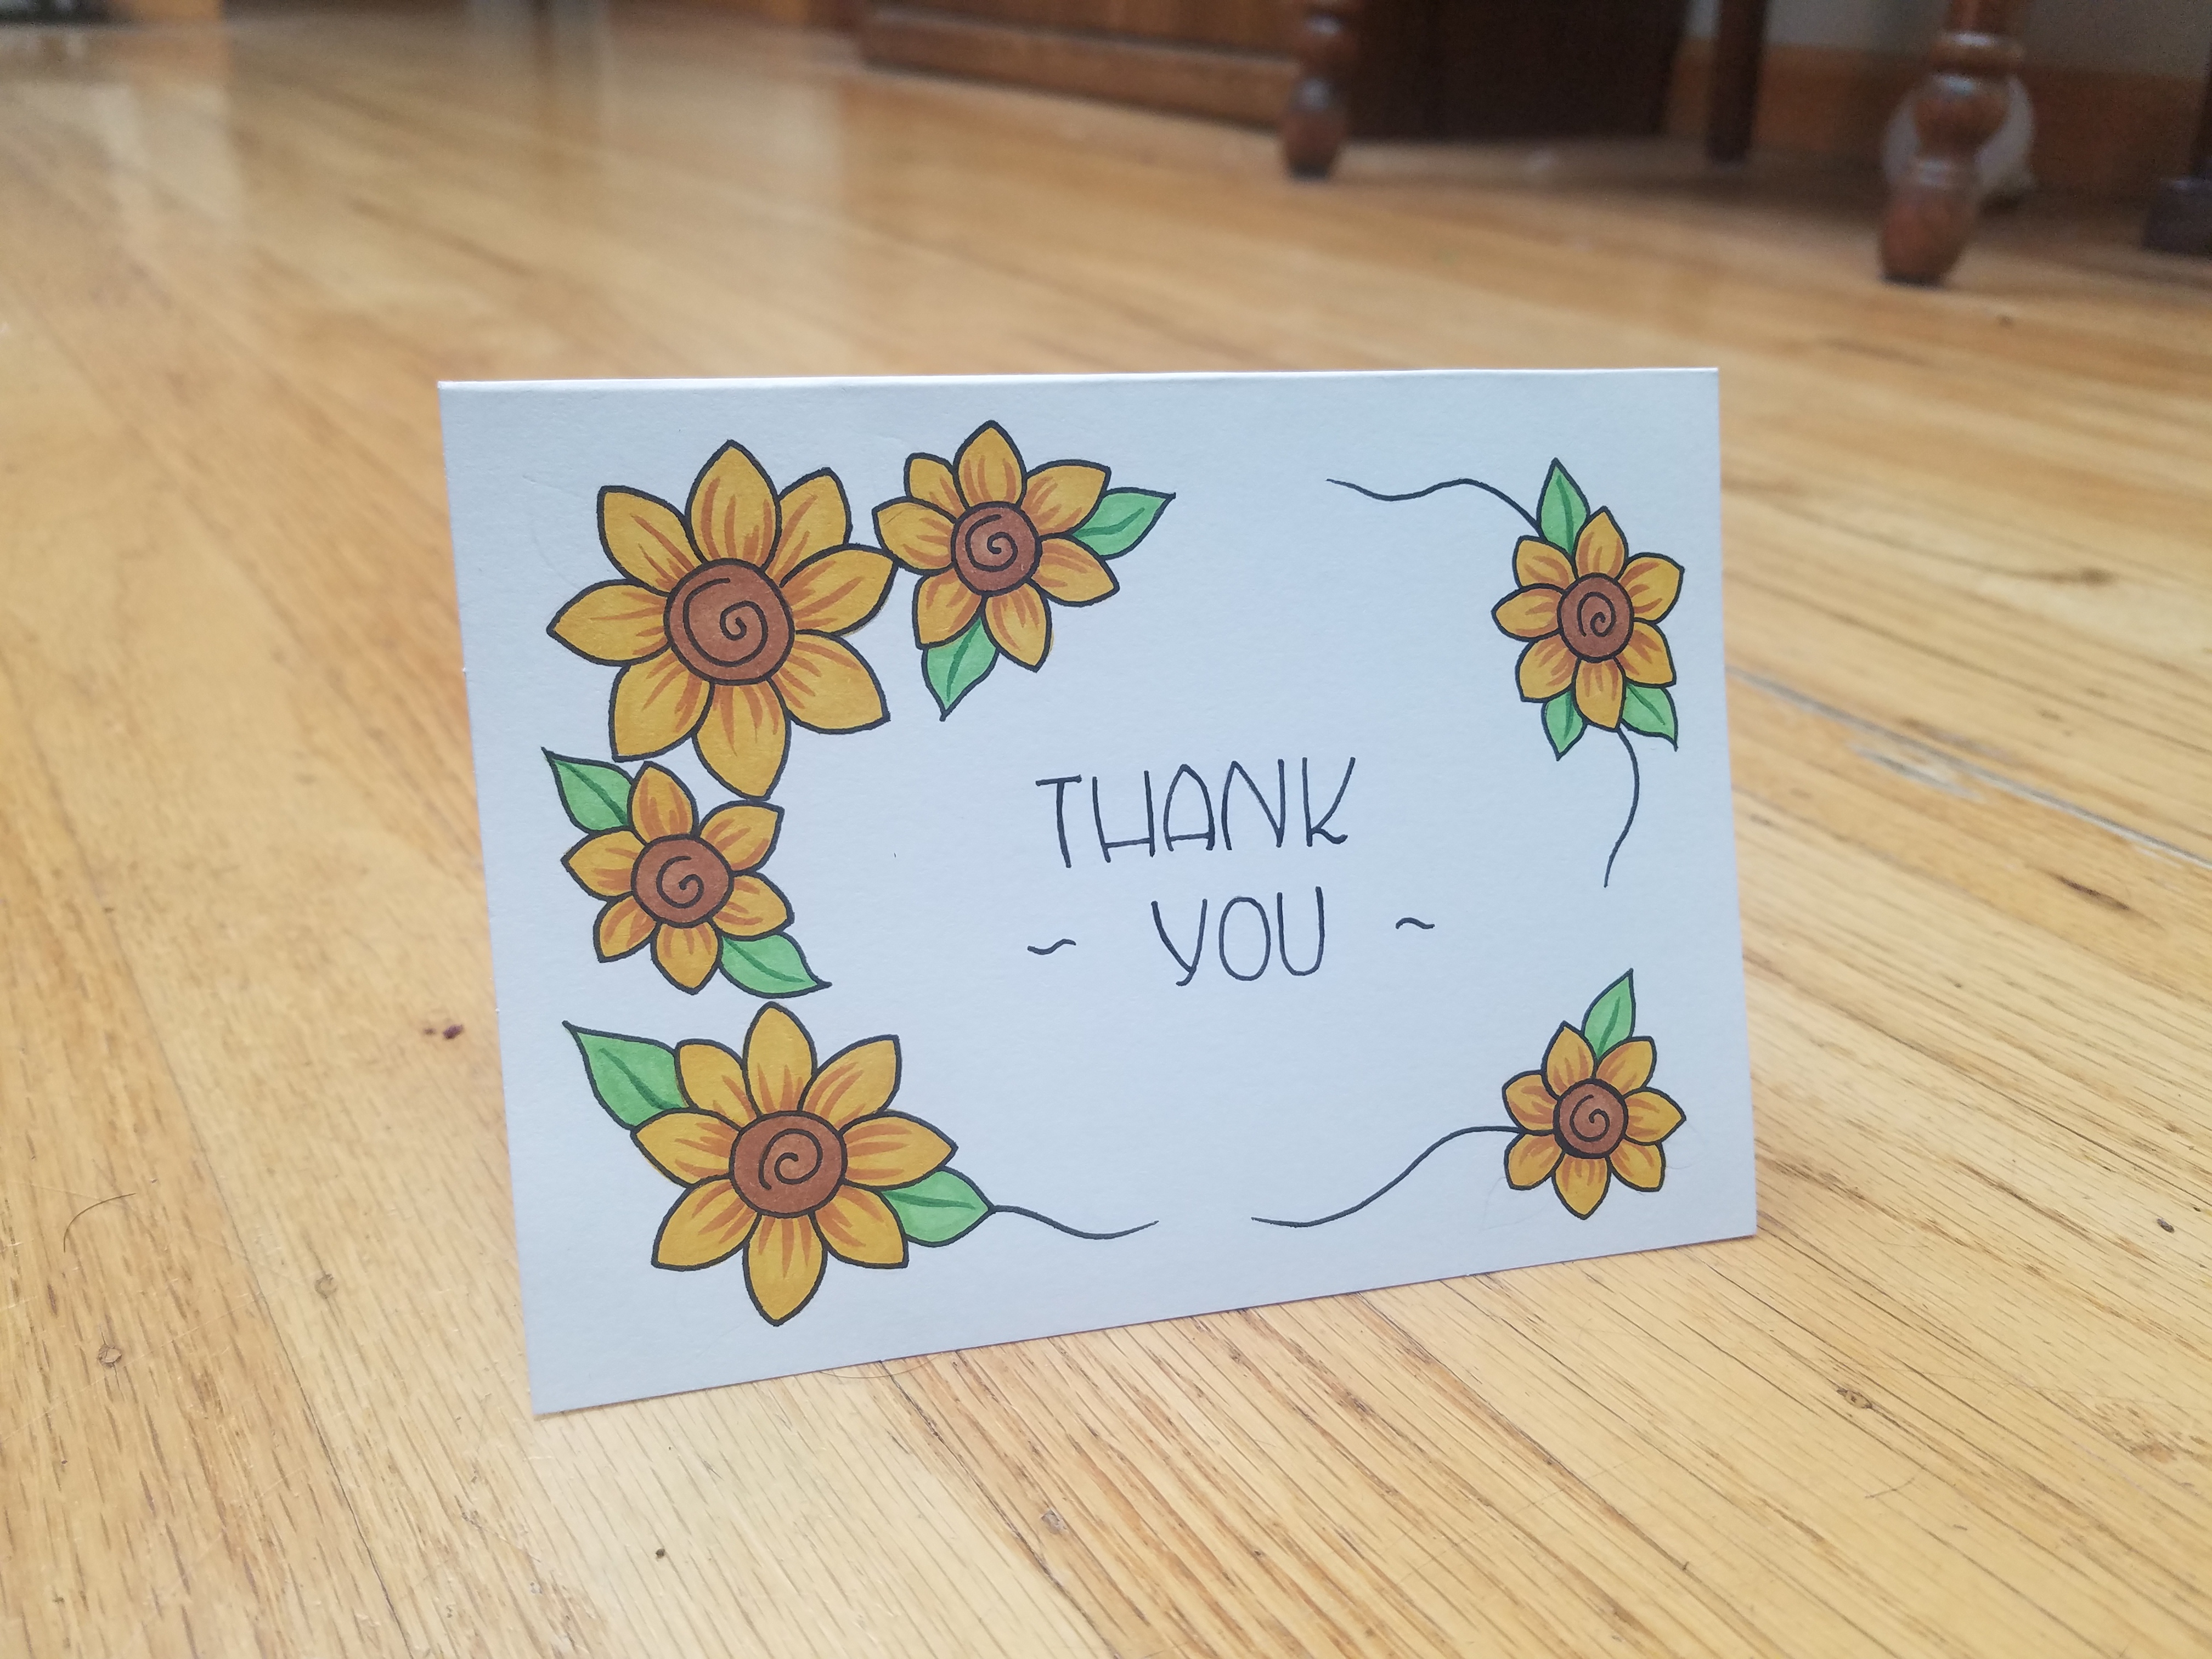 THANK
~ YOU ~